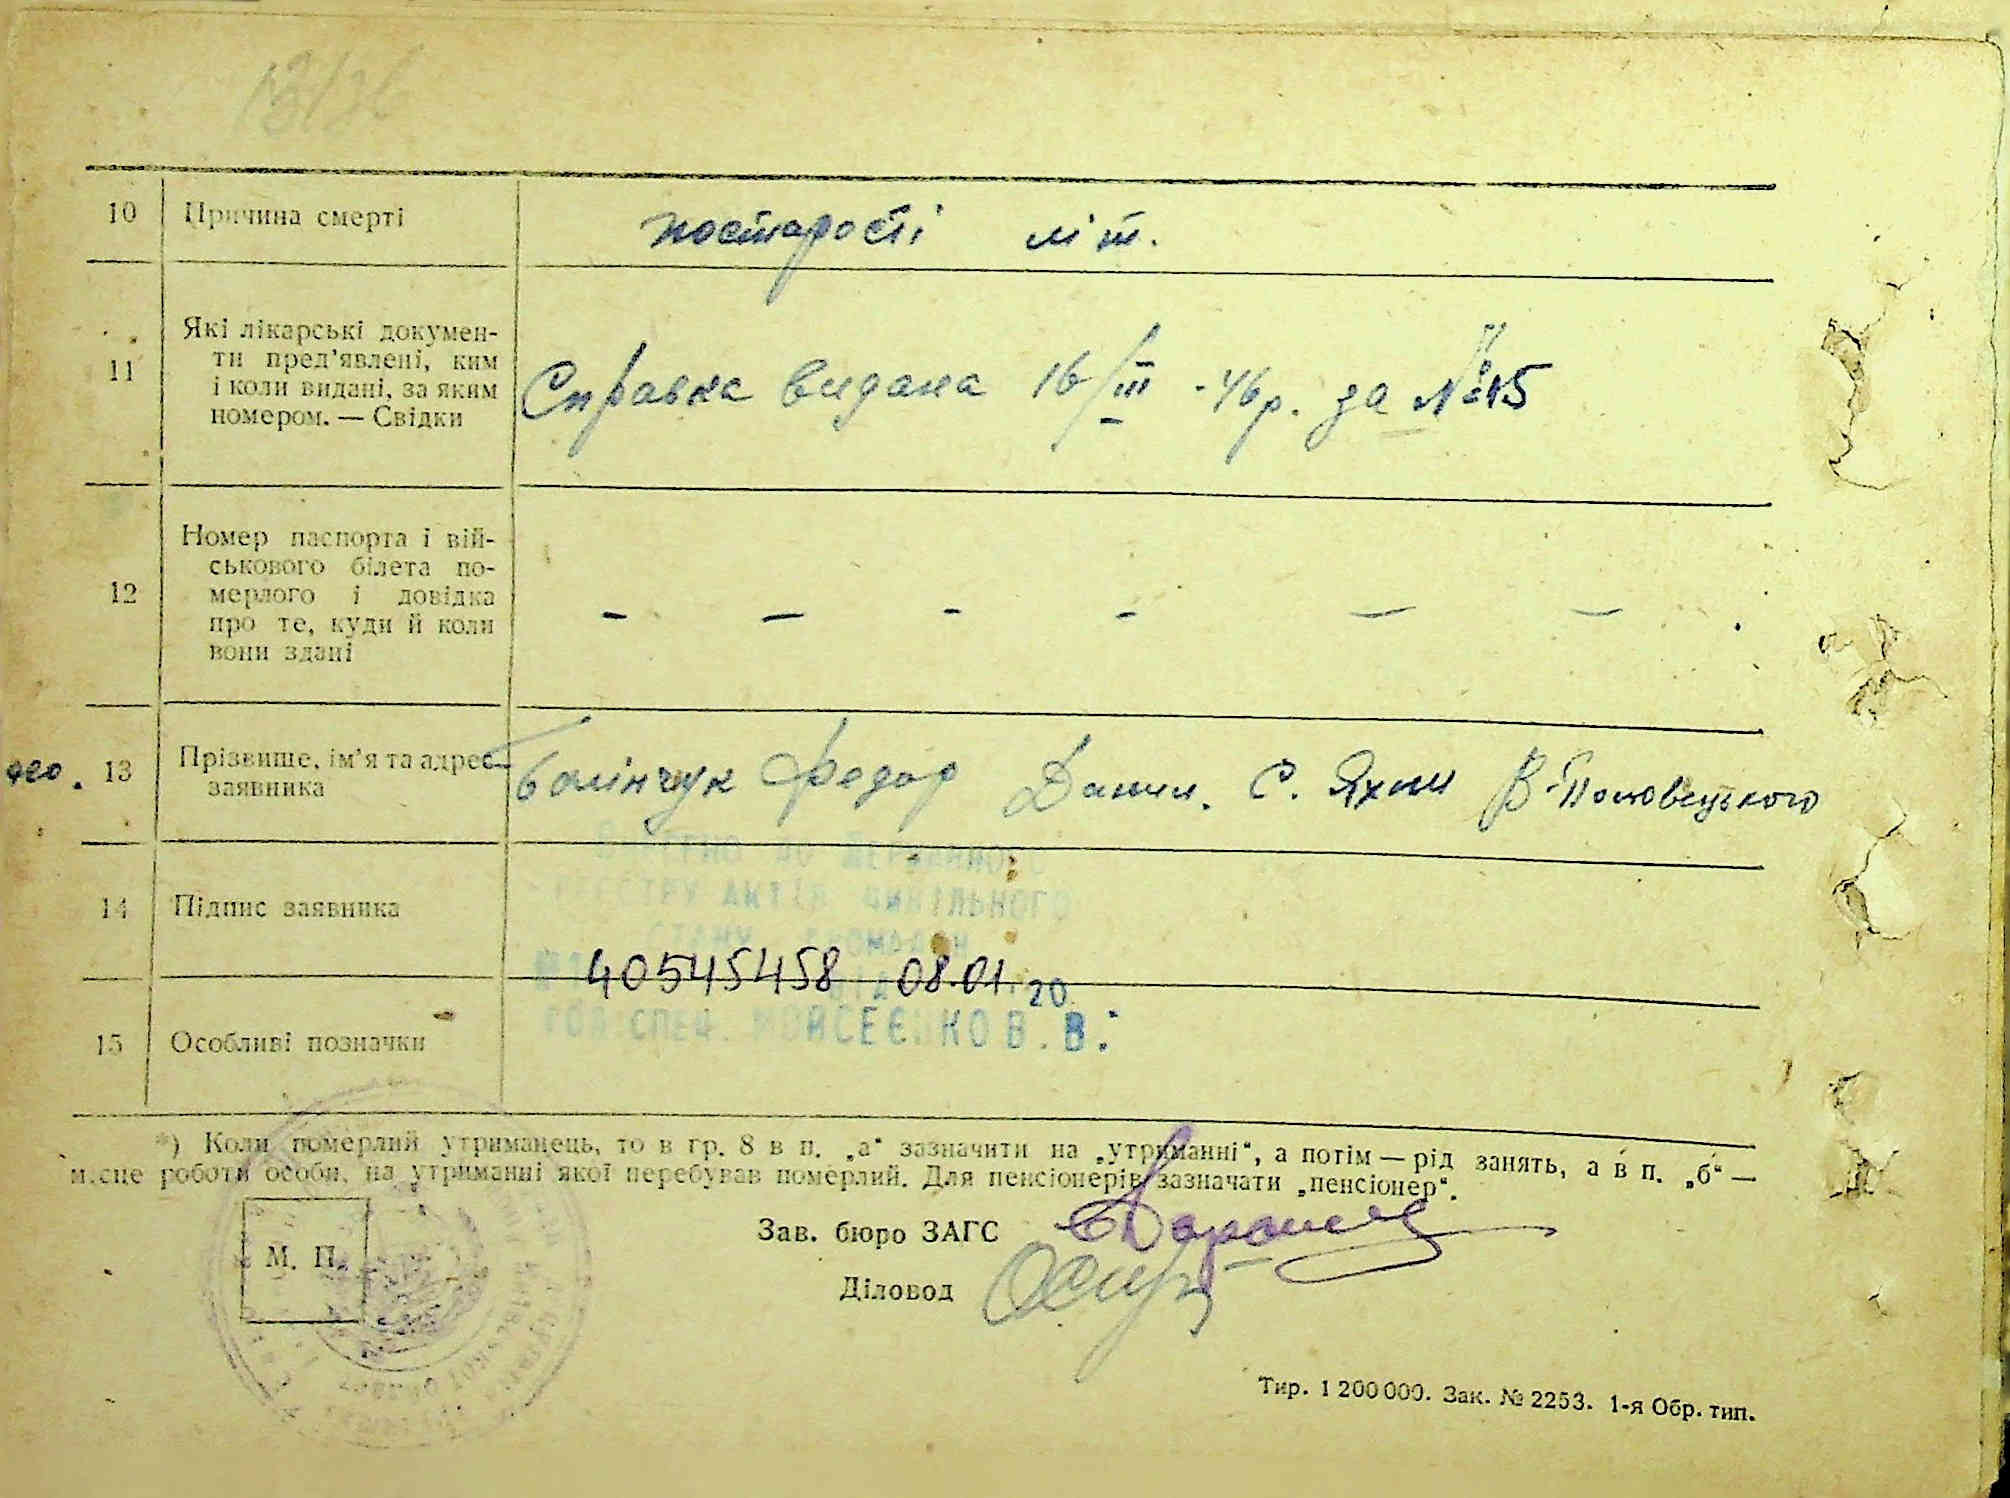 10 Причина смерті постарості літ.
11 Які лікарські докумен-
ти пред'явлені, ким
і коли видані, за яким
номером. — Свідки
Справка видана 16/III -46р. за №15
12 Номер паспорта і вій-
ськового білета по-
мерлого і довідка
про те, куди й коли
вони здані
– – – – – –
13 Прізвище, ім'я та адрес
заявника
Федор Данил. С. Яхни В-Половецького
ВНЕСЕНО ДО ДЕРЖАВНОГО
РЕЄСТРУ АКТІВ ЦИВІЛЬНОГО
СТАНУ ГРОМАДЯН
14 Підпис заявника
40545458 08.01.20
ГОЛ.СПЕЦ. МОЙСЕЄНКО В.В.
15 Особливі позначки
*) Коли померлий утриманець, то в гр. 8 в п. „а“ зазначити на „утриманні“, а потім — рід занять, а в п. „б“ —
місце роботи особи, на утриманні якої перебував померлий. Для пенсіонерів зазначати „пенсіонер“.
Зав. бюро ЗАГС
М. П.
Діловод
Тир. 1 200 000. Зак. № 2253. 1-я Обр. тип.